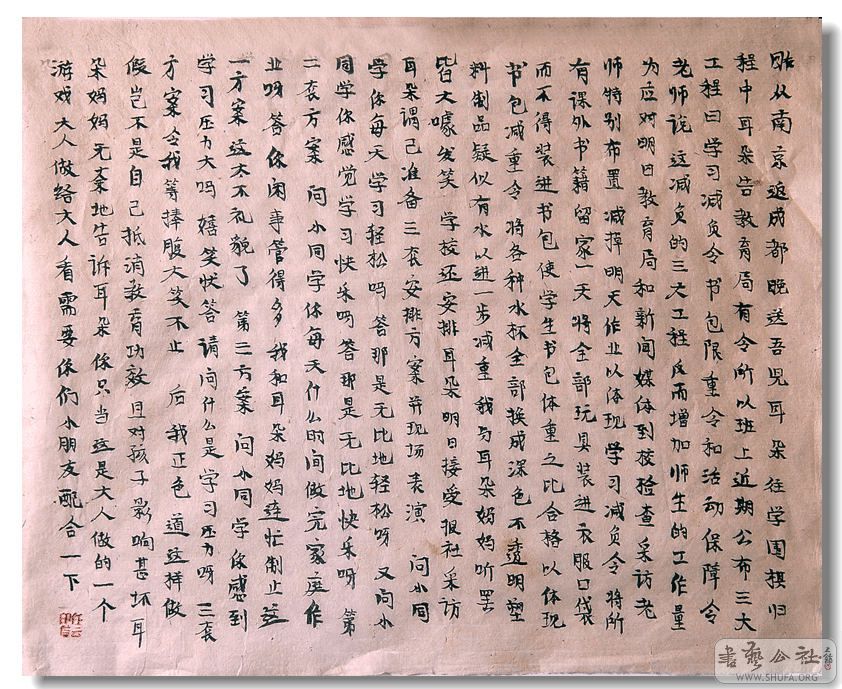 昨从南京返成都晚送吾儿耳朵往学围棋归
程中耳朵告教育局有令所以班上近期公布三大
工程曰学习减负令书包限重令和活动保障令
老师说这减负的三大工程反而增加师生的工作量
为应对明日教育局和新闻媒体到校检查采访老
师特别布置减掉明天作业以体现学习减负令将所
有课外书籍留家一天将全部玩具装进衣服口袋
而不得装进书包使学生书包体重之比合格以体现
书包减重令将各种水杯全部换成深色不透明塑
料制品疑似有水以进一步减重我与耳朵妈妈听罢
皆大噱发笑 学校还安排耳朵明日接受报社采访
耳朵谓已准备三套安排方案并现场表演 问小同
学你每天学习轻松吗答那是无比地轻松呀 又问小
同学你感觉学习快乐吗答那是无比地快乐呀 第
二套方案 问小同学你每天什么时间做完家庭作
业呀答你闲事管得多 我和耳朵妈妈连忙制止这
一方案这太不礼貌了 第三方案 问小同学你感到
学习压力大吗嬉笑状答请问什么是学习压力呀三套
方案令我等捧腹大笑不止 后我正色道这样做
假岂不是自己抵消教育功效且对孩子影响甚坏耳
朵妈妈无奈地告诉耳朵你只当这是大人做的一个
游戏大人做给大人看需要你们小朋友配合一下
书艺公社
WWW.SHUFA.ORG